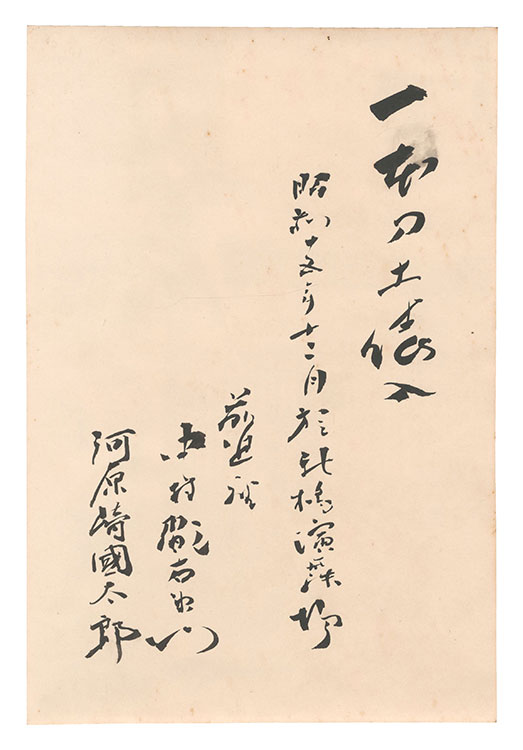 一本刀土俵入
昭和十五年十二月於新橋演舞場
前進座
中村翫右衛門
河原崎國太郎